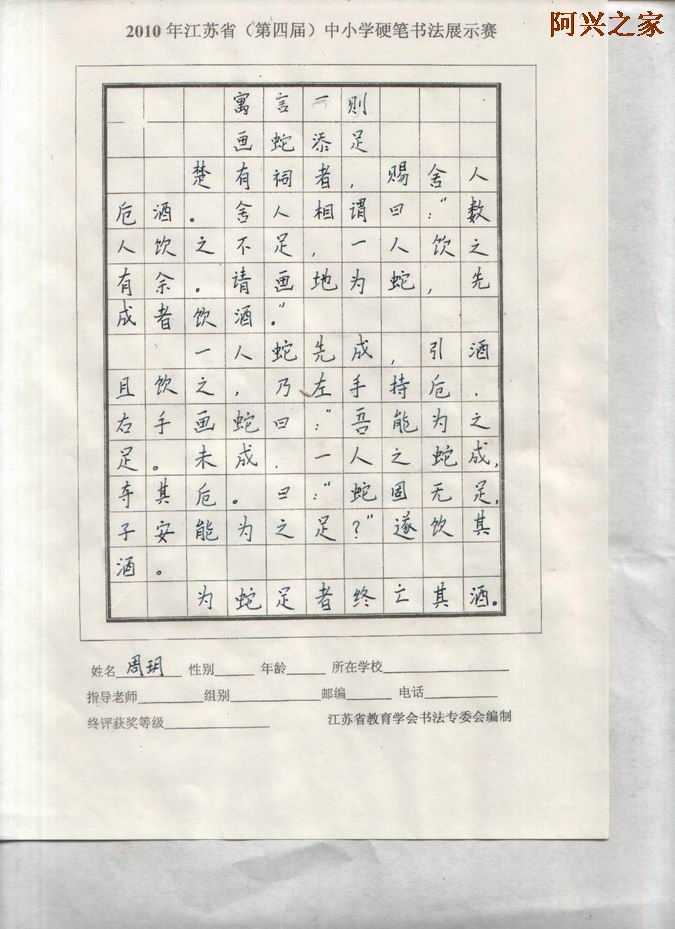 阿兴之家
2010年江苏省（第四届）中小学硬笔书法展示赛
寓言一则
画蛇添足
楚有祠者，赐舍人
卮酒。舍人相谓曰：“数
人饮之不足，一人饮之
有余。请画地为蛇，先
成者饮酒。”
一人蛇先成，引酒
且饮之，乃左手持卮，
右手画蛇曰：“吾能为之
足。未成，一人之蛇成，
夺其卮。曰：“蛇固无足，
子安能为之足？”遂饮其
酒。
为蛇足者终亡其酒。
姓名周玥 性别 年龄 所在学校
指导老师 组别 邮编 电话
终评获奖等级 江苏省教育学会书法专委会编制